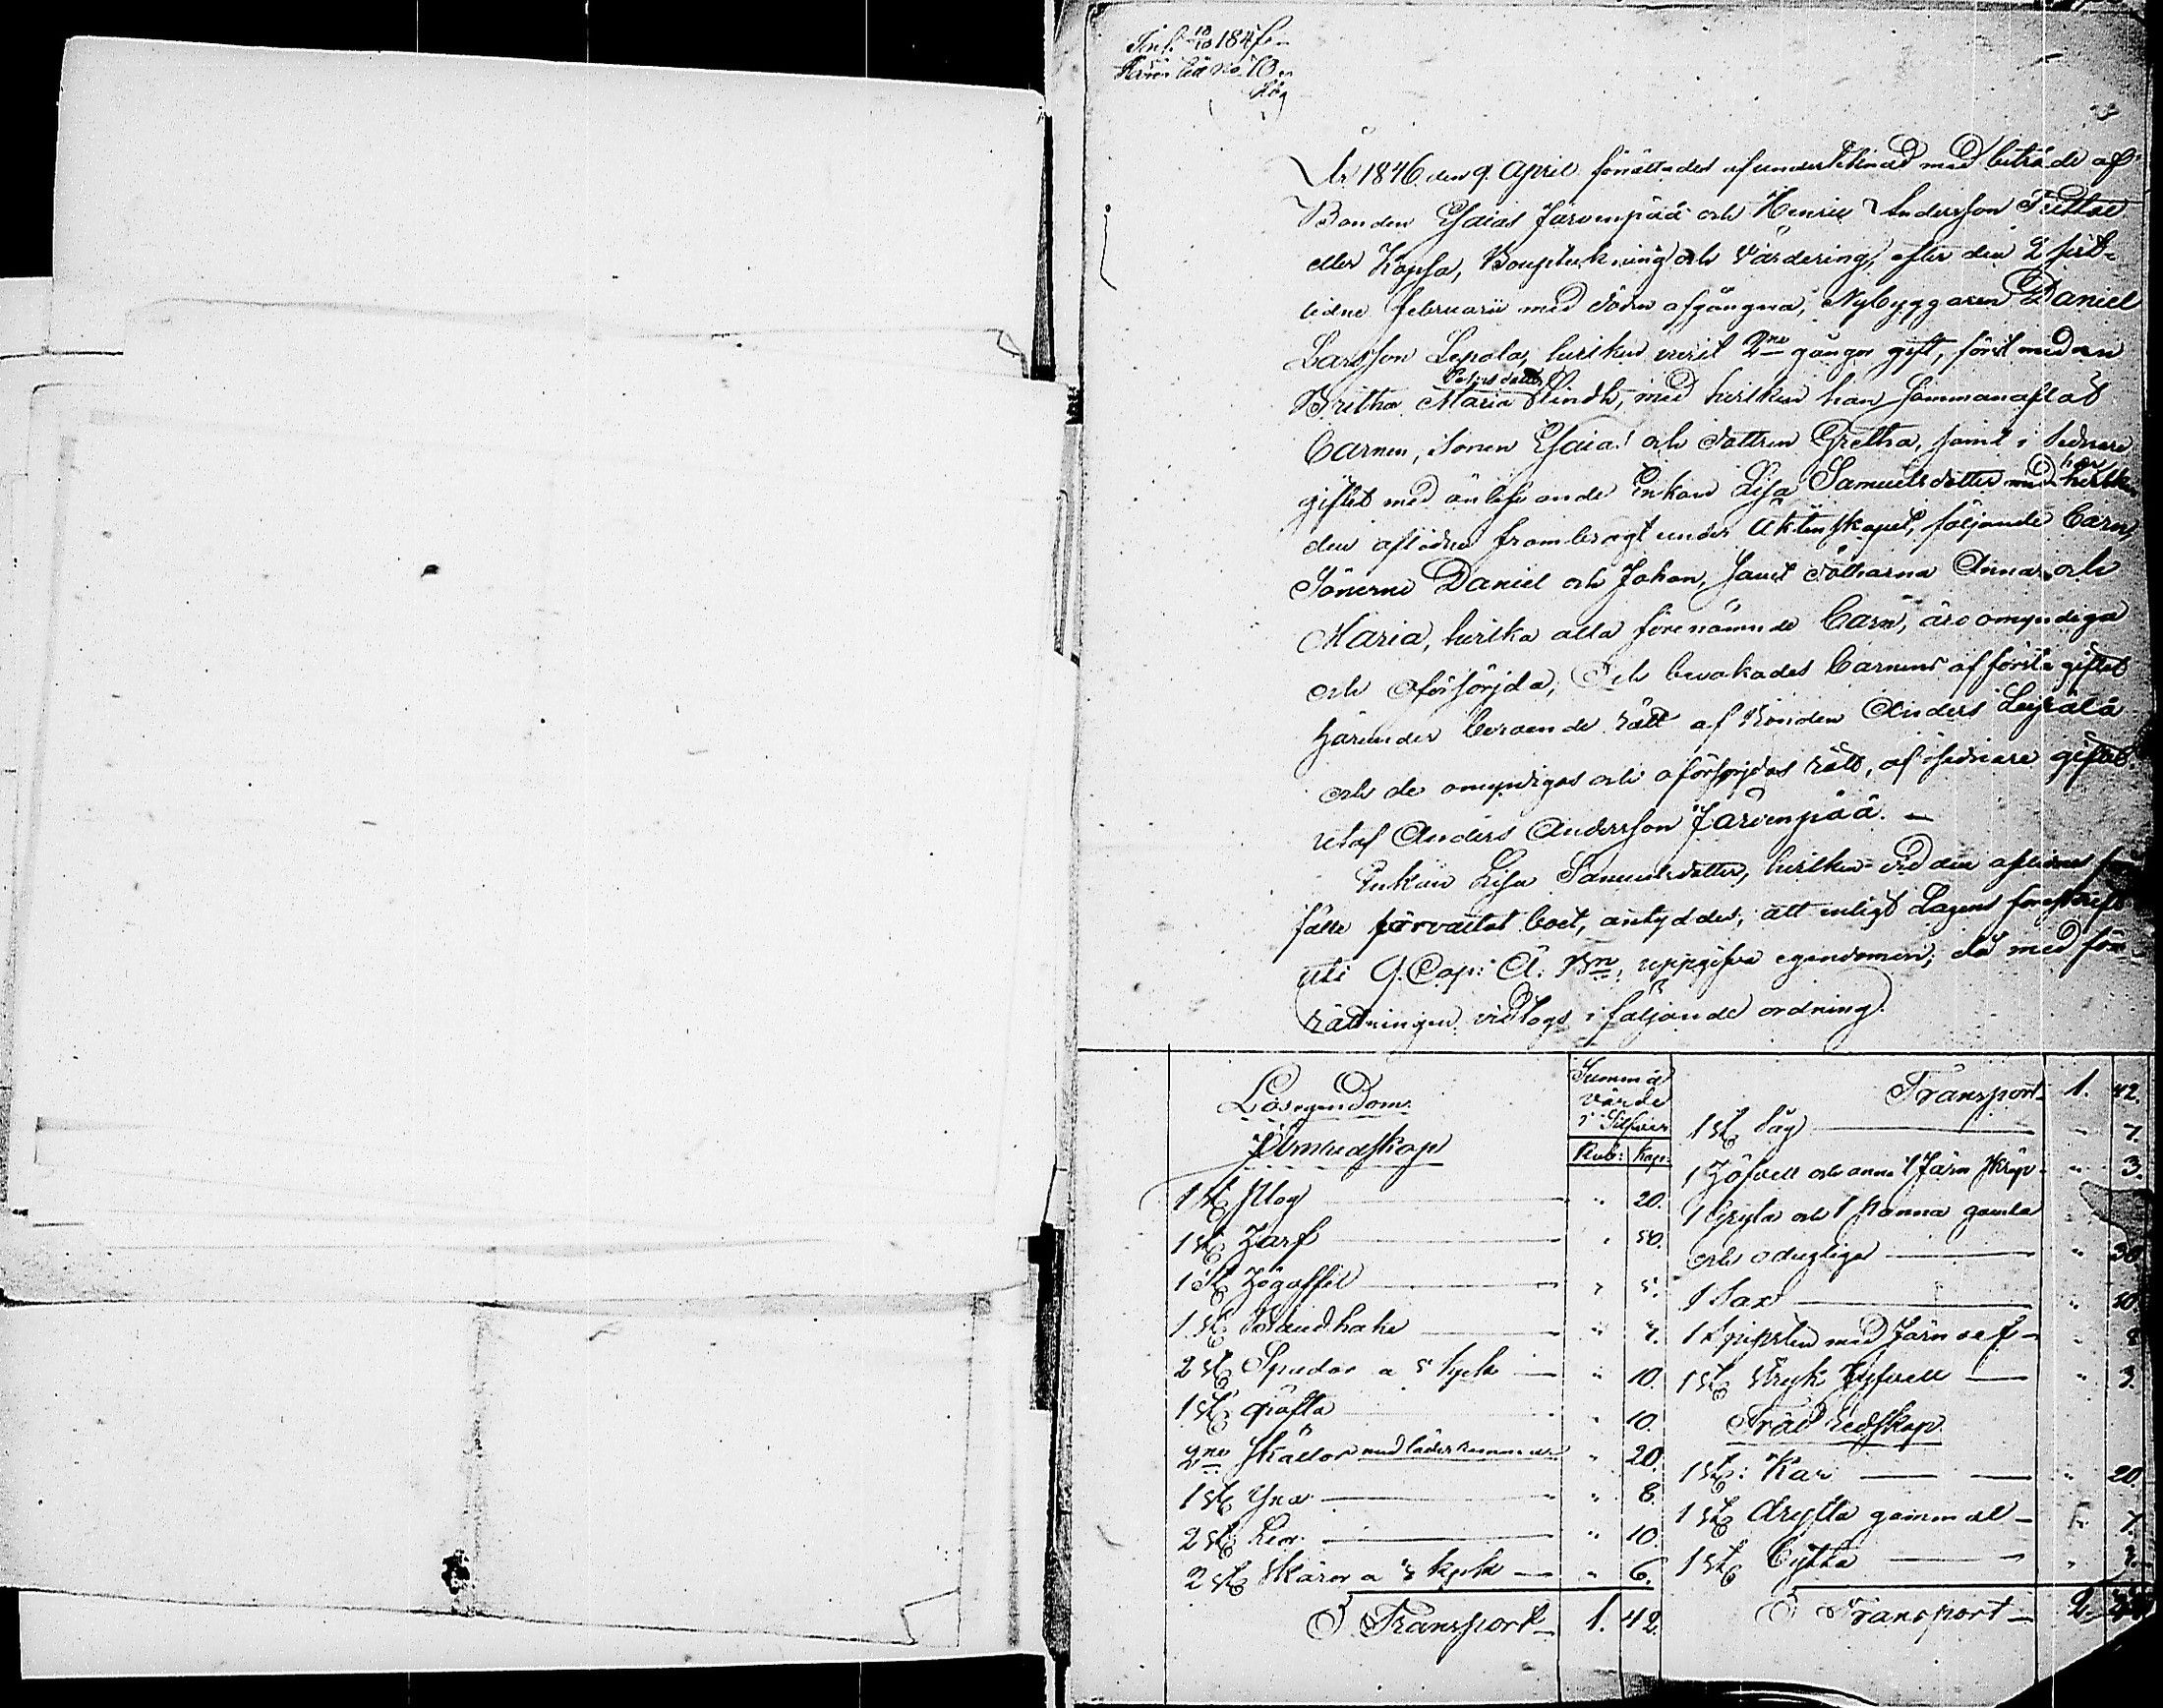 År 1846 den 9 April förrättades af undertecknad med biträde af
Bonden Esaias Järvenpää och Henric Andersson
eller Kopsa, Bouptekning och Värdering, efter den 2 sist-
ledne Februarii med döden afgångna, Nybyggaren Daniel
Larsson Lepola, hvilken varit 2ne gånger gift, först med en
Britha Maria Petersdotter Lindh, med hvilken han sammanaflat
barnen, Sonen Esaias och dottren Gretha, samt i sednare
giftet med änlefvande Enkan Lisa Samuelsdotter med hvilken
den aflidne frambragt under äktenskapet, följande barn,
Sönerne Daniel och Johan, samt döttrarna Anna och
Maria, hvilka alla förenämnde barn, äro omyndiga
och oförsörjda; Och bevakades barnens af första giftet
härunder beroende rätt af Bonden Anders Leipälä
och de omyndigas och oförsörjdas rätt, af sednare giftet
utaf Anders Andersson Järvenpää. —
Enkan Lisa Samuelsdotter, hvilken vid den aflidnes från-
fälle förvaltat boet, antyddes, att enligt Lagens föreskrift
uti 9. Cap: Ä. Bn: uppgifva egendomen; då med för-
rättningen vidtogs i följande ordning.
Lösegendom
Summa
värde
i Silfver
Rub: Kop:
1 st Plog — " 20.
1 st Harf — " 50.
1 st Högaffel — " 5.
1 st Brandhake — " 7.
2 st Spador a 5 kopk — " 10.
1 st gräfta — " 10.
2ne Skällor med läderremmar " 20.
1 st Yxa — " 8.
2 st Liar — " 10.
2 st Skäror a 3 kopk — " 6.
Transport — 1. 42.
Transport 1. 42.
1 st Såg — " 7.
1 Höfvel och annat Järn skrap — " 3.
1 Gryta och 1 Panna gamla
och odugliga — " 30
1 Sax — " 10.
1 Slipsten med Järn vef — " 8
1 st Stryk Hyfvell — " 3.
Träd Redskap
1 st: Kar — " 20
1 st Drytta gammal — 7.
1 st Bytta — " 3.
Transport — 2.